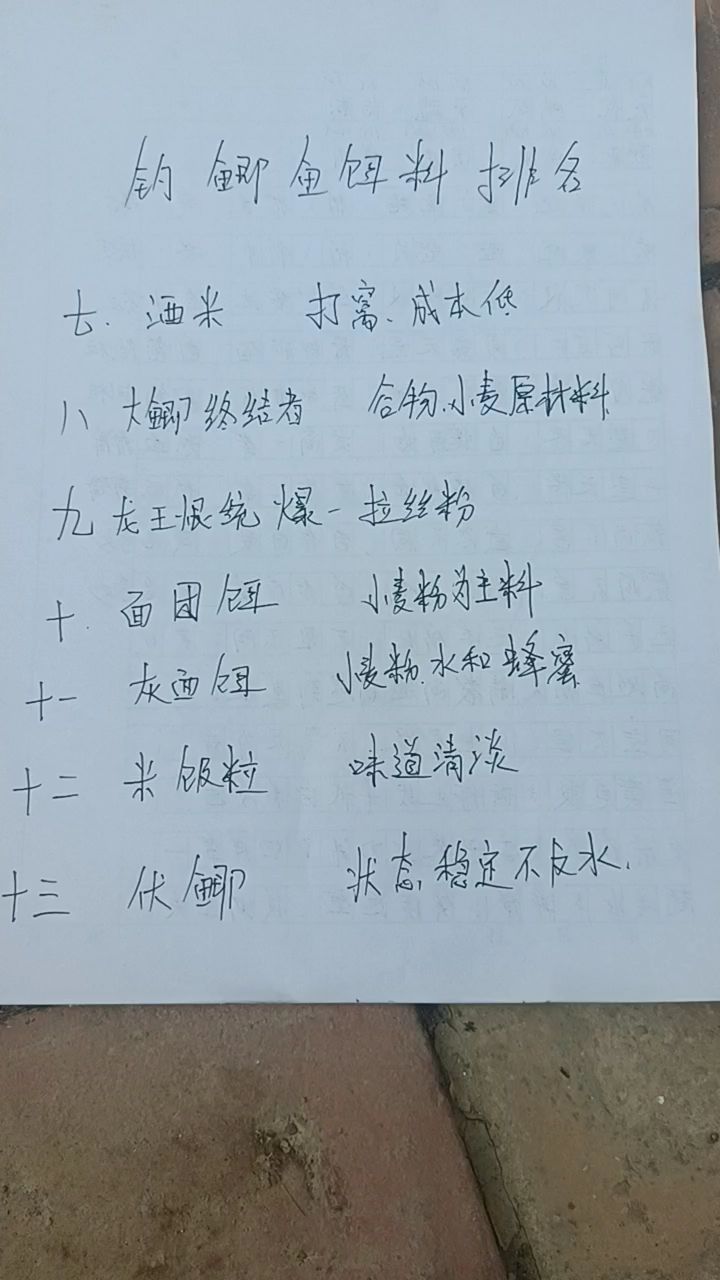 钓鲫鱼饵料排名
七. 酒米 打窝、成本低
八 大鲫终结者 谷物、小麦原材料
九 龙王恨统爆一拉丝粉
十. 面团饵 小麦粉为主料
十一 灰面饵 小麦粉.水和蜂蜜
十二 米饭粒 味道清淡
十三 伏鲫 状态稳定不反水.